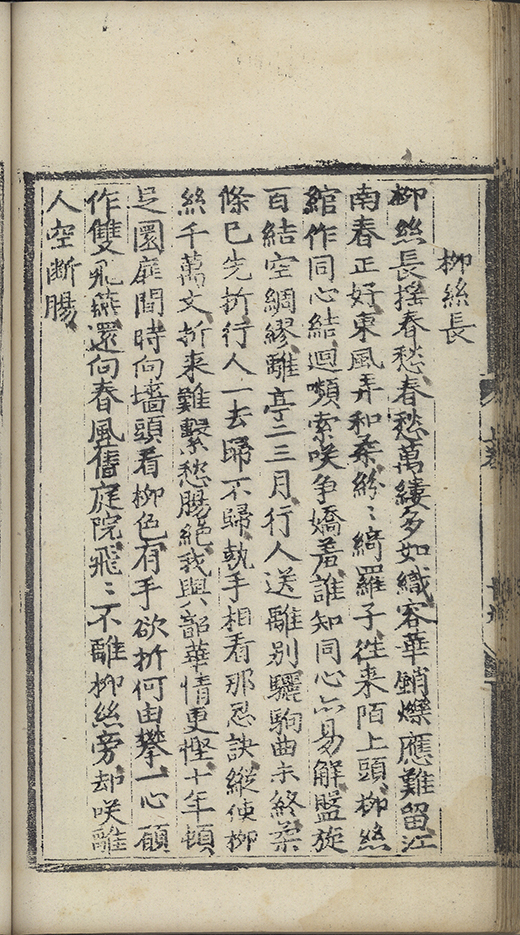 柳絲長
柳絲長搖春愁春愁萬縷多如織容華銷爍應難留江
南春正好東風弄和柔紛〻綺羅子往来陌上頭柳絲
綰作同心結迴嚬索咲争嬌羞誰知同心亦易解盤旋
百結空綢繆離亭二三月行人送離别驪駒曲未終柔
條已先折行人一去歸不歸執手相看那忍訣縱使柳
絲千萬丈折来難繫愁腸絕我與韶華情更慳十年頓
足園扉間時向墻頭看柳色有手欲折何由攀一心願
作雙飛燕還向春風舊庭院飛〻不離柳絲旁却咲離
人空断腸
上卷